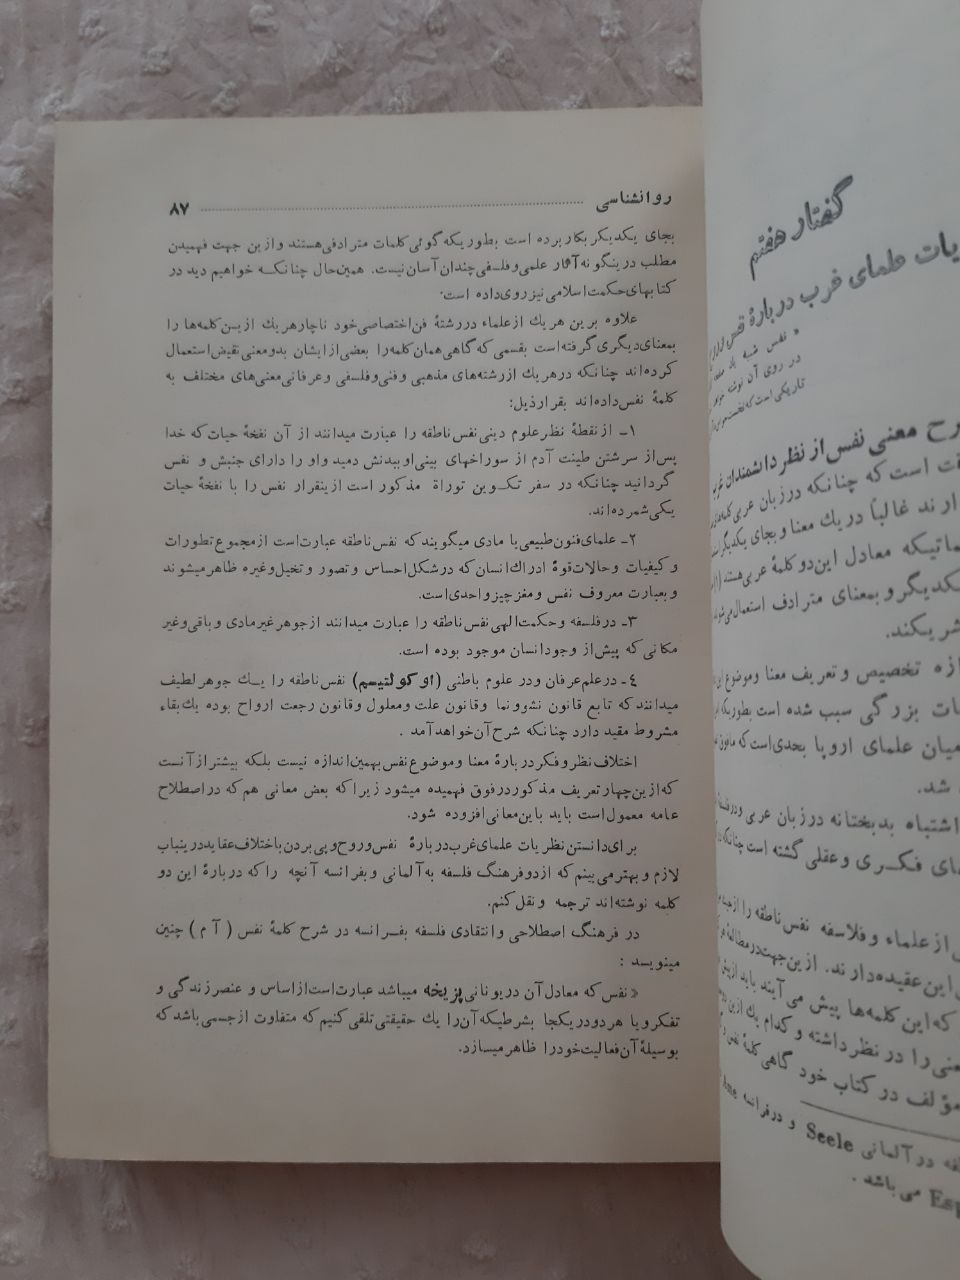 روانشناسی ........ ۸۷
بجای یکدیگر بکار برده است بطوریکه گوئی کلمات مترادفی هستند و ازین جهت فهمیدن
مطلب درینگونه آثار علمی و فلسفی چندان آسان نیست. همین حال چنانکه خواهیم دید در
کتابهای حکمت اسلامی نیز روی داده است.
علاوه برین هریك از علماء دررشتهٔ فن اختصاصی خود ناچار هریك ازین کلمه‌ها را
بمعنای دیگری گرفته است بقسمی که گاهی همان کلمه را بعضی از ایشان بدو معنی نقیض استعمال
کرده‌اند چنانکه درهریك از رشته‌های مذهبی و فنی و فلسفی و عرفانی معنی‌های مختلف به
کلمهٔ نفس داده‌اند بقرار ذیل:
۱ـ از نقطهٔ نظر علوم دینی نفس ناطقه را عبارت میدانند از آن نفخهٔ حیات که خدا
پس از سرشتن طینت آدم از سوراخهای بینی او ببدنش دمید و او را دارای جنبش و نفس
گردانید چنانکه در سفر تکوین توراة مذکور است ازینقرار نفس را با نفخهٔ حیات
یکی شمرده‌اند.
۲ـ علمای فنون طبیعی یا مادی میگویند که نفس ناطقه عبارت است از مجموع تطورات
و کیفیات و حالات قوهٔ ادراك انسان که درشکل احساس و تصور و تخیل وغیره ظاهر میشوند
و بعبارت معروف نفس و مغز چیز واحدی است.
۳ـ در فلسفه و حکمت الهی نفس ناطقه را عبارت میدانند از جوهر غیر مادی و باقی و غیر
مکانی که پیش از وجود انسان موجود بوده است.
٤ـ درعلم عرفان ودر علوم باطنی (اوکولتیسم) نفس ناطقه را یـك جوهر لطیف
میدانند که تابع قانون نشوونما وقانون علت ومعلول وقانون رجعت ارواح بوده یك بقاء
مشروط مقید دارد چنانکه شرح آن خواهد آمد .
اختلاف نظر و فکر دربارهٔ معنا وموضوع نفس بهمین اندازه نیست بلکه بیشتر از آنست
که ازین چهار تعریف مذکور در فوق فهمیده میشود زیرا که بعض معانی هم که در اصطلاح
عامه معمول است باید باین معانی افزوده شود.
برای دانستن نظریات علمای غرب دربارهٔ نفس و روح و پی بردن باختلاف عقاید درینباب
لازم و بهتر می بینم که از دو فرهنگ فلسفه به آلمانی و بفرانسه آنچه را که دربارهٔ این دو
کلمه نوشته‌اند ترجمه و نقل کنم.
در فرهنگ اصطلاحی و انتقادی فلسفه بفرانسه در شرح کلمهٔ نفس ( آ م ) چنین
مینویسد :
« نفس که معادل آن در یونانی پزیخه میباشد عبارت است از اساس و عنصر زندگی و
تفکر و یا هر دو در یکجا بشرطیکه آن را یك حقیقتی تلقی کنیم که متفاوت از جسمی باشد که
بوسیلهٔ آن فعالیت خود را ظاهر میسازد.
گفتار هفتم
علمای غرب دربارهٔ
« نفس شبیه
در روی آن نوشته
معنی نفس از نظر دانشمندان
است که چنانکه در زبان عربی
غالباً در یك معنا و بجای یکدیگر
معادل این دو کلمهٔ عربی هستند
و بمعنای مترادف استعمال
تخصیص و تعریف معنا وموضوع
بزرگی سبب شده است بطوریکه
میان علمای اروپا بحدی است که
شد.
اشتباه بدبختانه در زبان عربی
فکری و عقلی گشته است چنانکه
از علماء و فلاسفه نفس ناطقه را
این عقیده دارند. ازین جهت در مطالعهٔ
که این کلمه‌ها پیش می آیند باید
را در نظر داشته و کدام یك ازین
مؤلف در کتاب خود گاهی کلمهٔ نفس
در آلمانی Seele و در فرانسه Ame
می باشد .